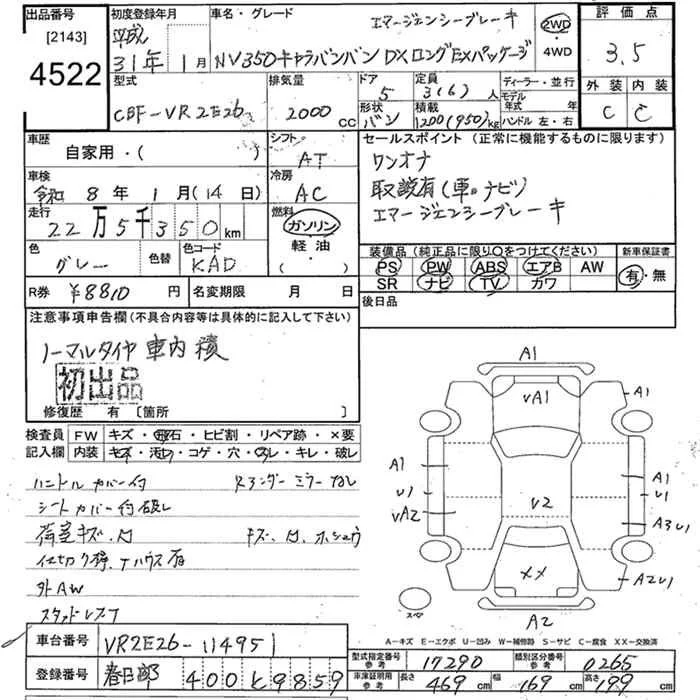 出品番号 [2143] 4522
初度登録年月 平成 31年 1月
車名・グレード エマージェンシーブレーキ
NV350キャラバンバン DXロングEXパッケージ
2WD ・ 4WD
評価点 3.5
外装 内装
C C
型式 CBF-VR2E26
排気量 2000 CC
ドア 5
形状 バン
定員 3(6)人
積載 1200(950)kg
ディーラー・並行
モデル年式 年
ハンドル 左・右
車歴 自家用・( )
シフト AT
車検 令和 8年 1月(14日)
冷房 AC
走行 22万5千350km
燃料 ガソリン・軽油・( )
色 グレー 色替
色コード KAD
R券 ¥8810円
名変期限 月 日
セールスポイント (正常に機能するものに限ります)
ワンオナ
取説有(車・ナビ)
エマージェンシーブレーキ
装備品(純正品に限り○をつけてください)
PS PW ABS エアB AW
SR ナビ TV カワ
新車保証書 有・無
後日品
注意事項申告欄(不具合内容等は具体的に記入して下さい)
ノーマルタイヤ車内積
初出品
修復歴 有 [箇所 ]
検査員記入欄
FW キズ・飛石・ヒビ割・リペア跡・×要
内装 キズ・汚れ・コゲ・穴・スレ・キレ・破レ
ハンドルカバー付 R3ンダーミラーなし
シートカバー付破レ
荷室キズ、凹 キズ、凹、ホシュウ
外AW
スタッドレス7
車台番号 VR2E26-114951
登録番号 春日部 400 と 9859
A1
VA1
A1
A1
U1
VA2
V2
A1
U1
A3U1
XX
A2U1
スペア
A2
A-キズ E-エクボ U-凹み W-補修跡 S-サビ C-腐食 XX-交換済
型式指定番号 参考 17290
類別区分番号 参考 0265
車庫証明用 参考 長さ 469cm 幅 169cm 高さ 199cm